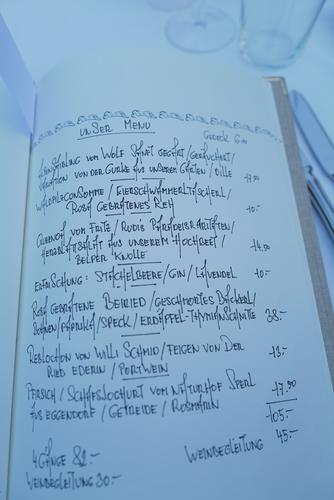 UNSER MENÜ
GEDECK 6,00
SAIBLING VOM WOLF SANFT GEGART / GERÄUCHERT /
VARIATION VON DER GURKE AUS UNSEREM GARTEN / DILLE 17,00
WALDPILZCONSOMMÉ / EIERSCHWAMMERLTASCHERL /
ROSA GEBRATENES REH 10.-
VOM FRITZ / RUDIS PARADEISERRARITÄTEN /
AUS UNSEREM HOCHBEET / 14,00
BELPER KNOLLE
ERFRISCHUNG: STACHELBEERE / GIN / LAVENDEL 10.-
ROSA GEBRATENE BEIRIED / GESCHMORTES BACKERL /
BOHNEN / PAPRIKA / SPECK / ERDÄPFEL-THYMIANSCHNITTE 38.-
REBLOCHON VON WILLI SCHMID / FEIGEN VON DER
RIED EDERIN / PORTWEIN 13.-
PFIRSICH / SCHAFSJOGHURT VOM NATURHOF SPERL
AUS EGGENDORF / GETREIDE / ROSMARIN 17,00
105.-
4 GÄNGE 82.-
WEINBEGLEITUNG 45.-
WEINBEGLEITUNG 30.-